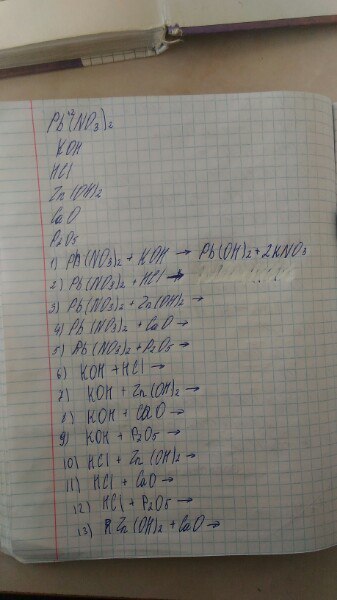 Pb⁺²(NO₃)₂
KOH
HCl
Zn(OH)₂
CaO
P₂O₅
1) Pb(NO₃)₂ + KOH → Pb(OH)₂ + 2KNO₃
2) Pb(NO₃)₂ + HCl →
3) Pb(NO₃)₂ + Zn(OH)₂ →
4) Pb(NO₃)₂ + CaO →
5) Pb(NO₃)₂ + P₂O₅ →
6) KOH + HCl →
7) KOH + Zn(OH)₂ →
8) KOH + CaO →
9) KOH + P₂O₅ →
10) HCl + Zn(OH)₂ →
11) HCl + CaO →
12) HCl + P₂O₅ →
13) Zn(OH)₂ + CaO →